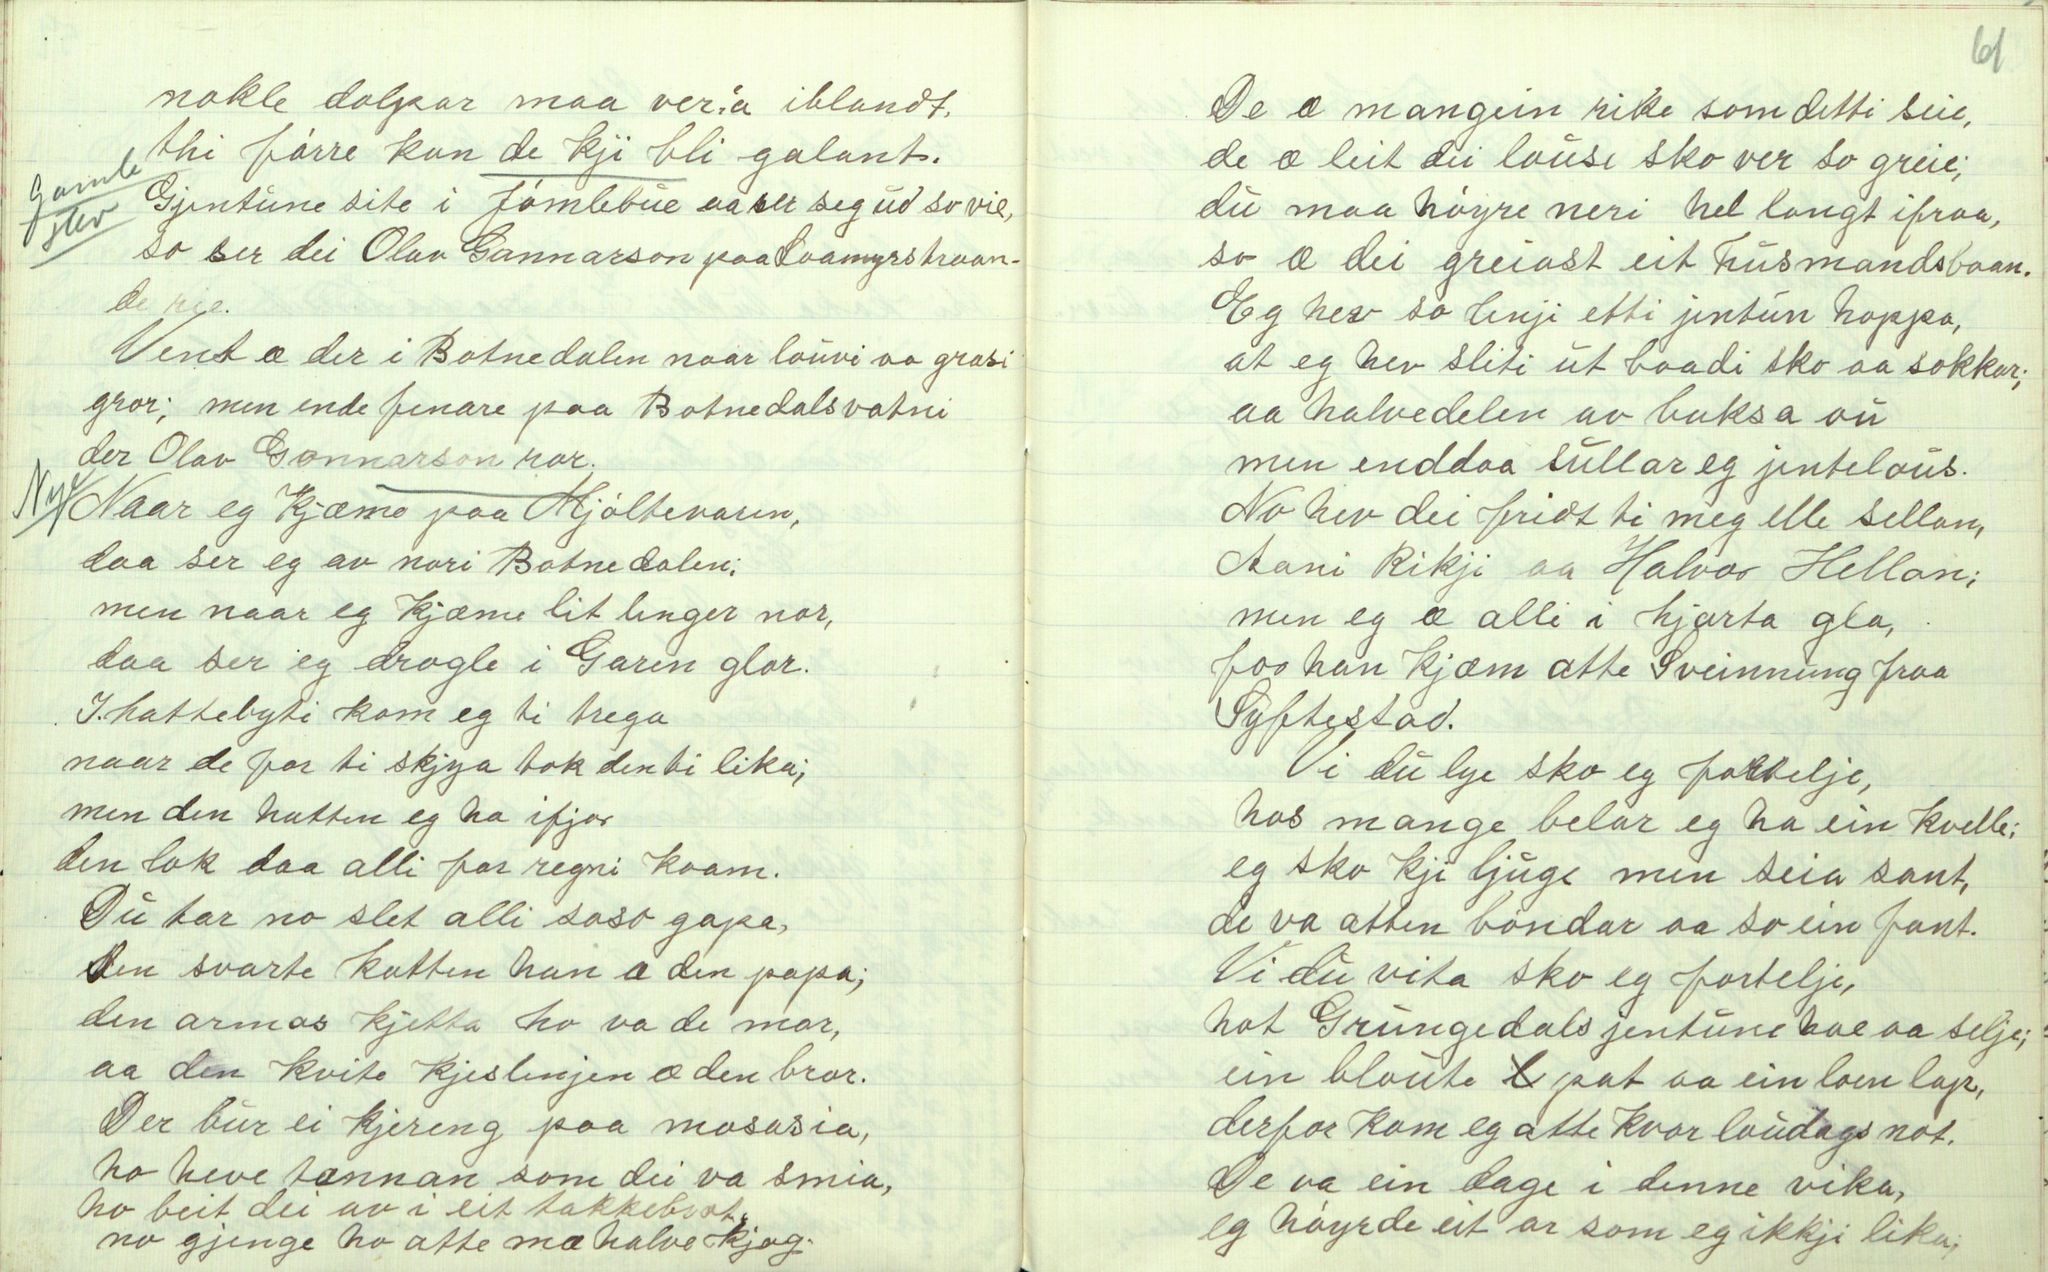 nokle dolpar maa ver:a iblandt,
thi fórre kan de kji bli galant.
Gamle
stev
Gjentúne site i Jómlebúe aa ser seg úd so vie,
so ser dei Olav Gunnarson paa Loamyrstraan-
de rie.
Vent æ der i Botnedalen naar louvi aa grasi
gror; men ende fenare paa Botnedalsvatni
der Olav Gonnarson ror.
Nye
Naar eg kjæme paa Mjóltevaren,
daa ser eg av nori Botnedalen;
men naar eg kjæme lit lenger nor,
daa ser eg drogle i Garen glor.
I. hattebyti kom eg ti trega
naar de for ti skjya tok den ti lika;
men den hatten eg ha ifjor
den lok daa alli for regni kvam.
Dú tar no slet alli soso gapa,
den svarte katten han æ den papa;
den armas kjetta ho va de mor,
aa den kvite kjeslenjen æ den bror.
Der búr ei kjereng paa mosasia,
ho heve tænnan som dei va smia,
ho beit dei av i eit takkebrot,
no gjenge ho atte mæ halve kjog.
61
De æ mangein rike som detti seie,
de æ leit dei louse sko ver so greie;
dú maa hóyre neri hel langt ifraa,
so æ dei greiast eit húsmandsbaan.
Eg hev so lenji etti jentún hoppa,
at eg hev sliti út baadi sko aa sokkar;
aa halvedelen av buksa oú
men enddaa súllar eg jenteloús.
No hev dei fridt ti meg elle sellan,
Aani Rikji aa Halvor Hellan;
men eg æ alli i hjarta gla,
for han kjæm atte Sveinnúng fraa
Syftestad.
Vi dú lye sko eg fortelje,
hos mange belar eg ha ein kvelle;
eg sko kji ljúge men seia sant,
de va atten bóndar aa so ein fant.
Vi dú vita sko eg fortelje,
hot Grúngedals jentúne hae aa selje;
ein bloúte pat aa ein loen lap,
derfor kom eg atte kvor loúdags not.
De va ein dage i denne vika,
eg hóyrde eit or som eg ikkji lika;